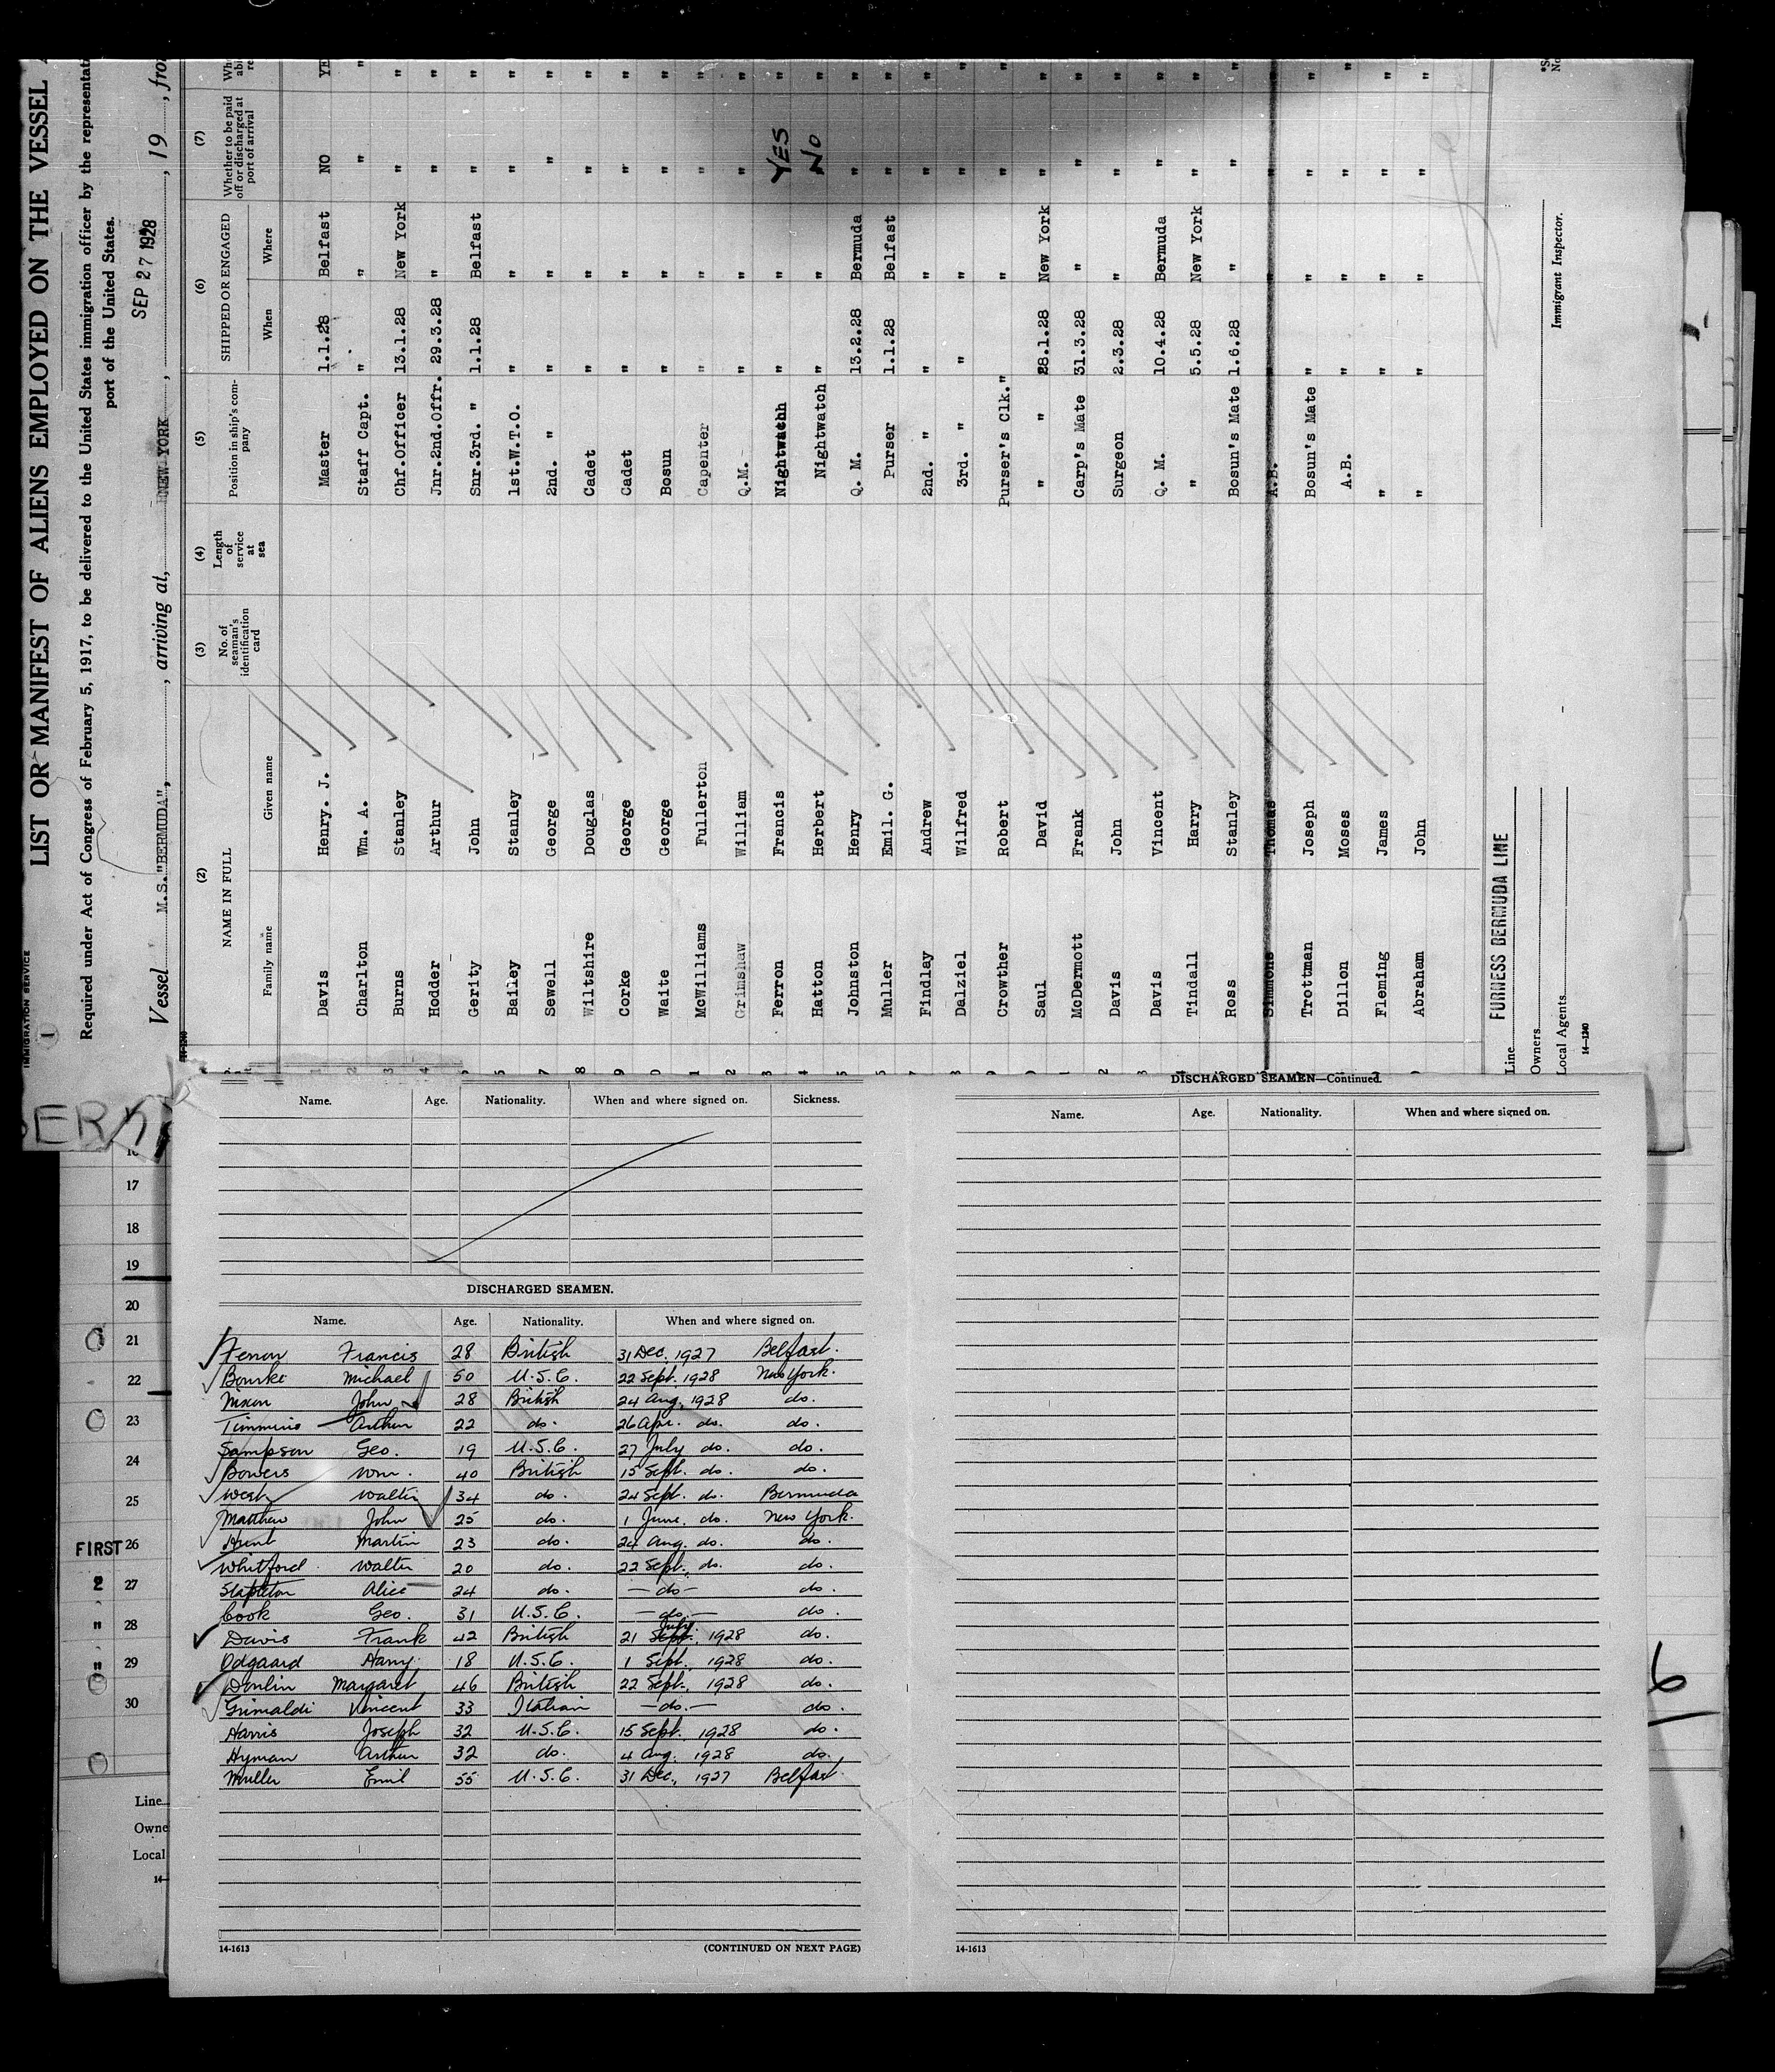 IMMIGRATION SERVICE
LIST OR MANIFEST OF ALIENS EMPLOYED ON THE VESSEL
Required under Act of Congress of February 5, 1917, to be delivered to the United States immigration officer by the representati
port of the United States.
SEP 27 1928
Vessel M.S."BERMUDA", arriving at, NEW YORK, 19, fro
(2) (3) (4) (5) (6) (7)
NAME IN FULL No. of seaman's identification card Length of service at sea Position in ship's com-pany SHIPPED OR ENGAGED Whether to be paid off or discharged at port of arrival
Family name Given name When Where
Davis Henry. J. Master 1.1.28 Belfast NO YE
Charlton Wm. A. Staff Capt. " " " "
Burns Stanley Chf.Officer 13.1.28 New York " "
Hodder Arthur Jnr.2nd.Offr. 29.3.28 " " "
Gerity John Snr.3rd. " 1.1.28 Belfast " "
Bailey Stanley 1st.W.T.O. " " " "
Sewell George 2nd. " " " " "
Wiltshire Douglas Cadet " " " "
Corke George Cadet " " " "
Waite George Bosun " " " "
McWilliams Fullerton Capenter " " " "
Grimshaw William Q.M. " " " "
Ferron Francis Nightwatch " " YES "
Hatton Herbert Nightwatch " " NO "
Johnston Henry Q. M. 13.2.28 Bermuda " "
Muller Emil. G. Purser 1.1.28 Belfast " "
Findlay Andrew 2nd. " " " " "
Dalziel Wilfred 3rd. " " " " "
Crowther Robert Purser's Clk." " " "
Saul David " " 28.1.28 New York " "
McDermott Frank Carp's Mate 31.3.28 " " "
Davis John Surgeon 2.3.28 " " "
Davis Vincent Q. M. 10.4.28 Bermuda " "
Tindall Harry " 5.5.28 New York " "
Ross Stanley Bosun's Mate 1.6.28 " " "
Simmons Thomas A.B. " " " "
Trottman Joseph Bosun's Mate " " " "
Dillon Moses A.B. " " " "
Fleming James " " " " "
Abraham John " " " " "
Line FURNESS BERMUDA LINE
Owners
Local Agents
Immigrant Inspector.
14-1240
Name. Age. Nationality. When and where signed on. Sickness.
DISCHARGED SEAMEN.
Name. Age. Nationality. When and where signed on.
Ferron Francis 28 British 31 Dec. 1927 Belfast.
Bourke Michael 50 U.S.C. 22 Sept. 1928 New York.
Nixon John 28 British 24 Aug. 1928 do.
Timmins Arthur 22 do. 26 Apr. do. do.
Sampson Geo. 19 U.S.C. 27 July do. do.
Bowers Wm. 40 British 15 Sept. do. do.
West Walter 34 do. 24 Sept. do. Bermuda
Matthew John 25 do. 1 June. do. New York.
Hunt Martin 23 do. 24 Aug. do. do.
Whitford Walter 20 do. 22 Sept. do. do.
Stapleton Alice 24 do. —do— do.
Cook Geo. 31 U.S.C. —do.— do.
Davis Frank 42 British 21 Sept. July 1928 do.
Odgaard Harry 18 U.S.C. 1 Sept. 1928 do.
Donlin Margaret 46 British 22 Sept. 1928 do.
Grimaldi Vincent 33 Italian —do.— do.
Harris Joseph 32 U.S.C. 15 Sept. 1928 do.
Hyman Arthur 32 do. 4 Aug. 1928 do.
Muller Emil 55 U.S.C. 31 Dec. 1927 Belfast.
14-1613 (CONTINUED ON NEXT PAGE)
DISCHARGED SEAMEN—Continued.
Name. Age. Nationality. When and where signed on.
14-1613
17
18
19
20
21
22
23
24
25
FIRST 26
2 27
" 28
" 29
30
Line
Owne
Local
14-
6